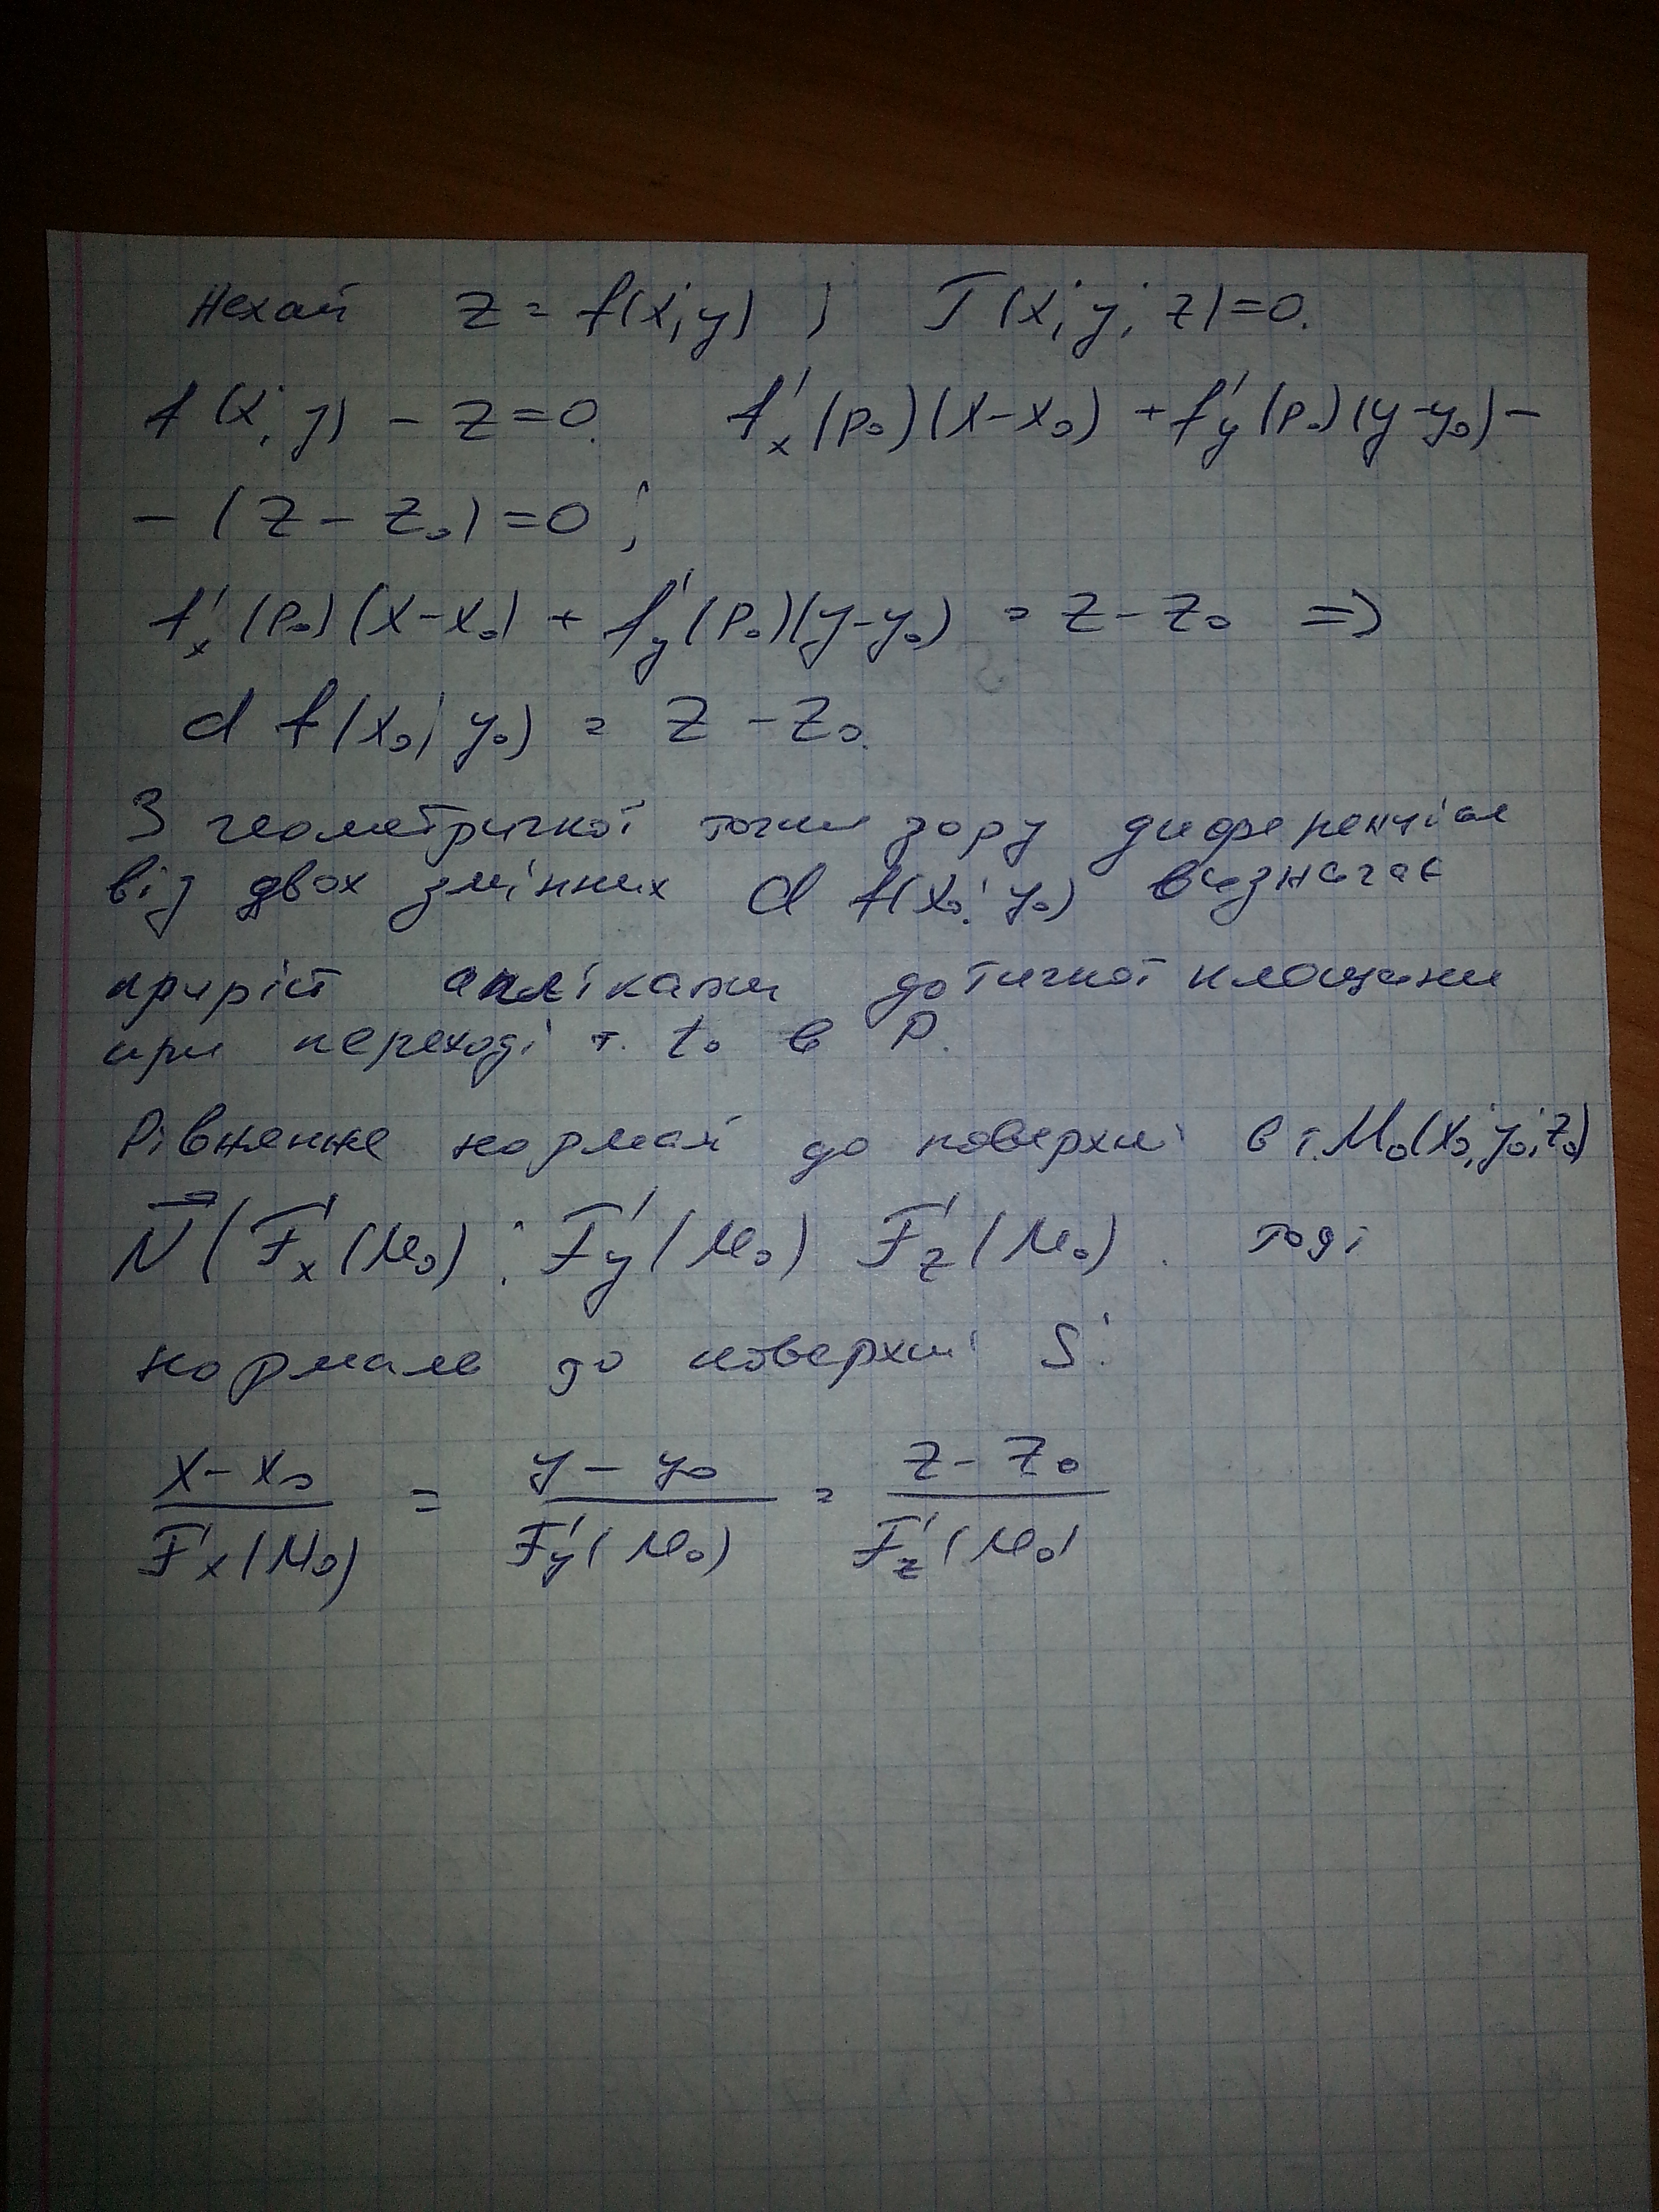 Нехай z = f(x; y) ; F(x; y; z) = 0.
f(x; y) - z = 0. f'x(P₀)(x-x₀) + f'y(P₀)(y-y₀) -
- (z - z₀) = 0 ;
f'x(P₀)(x-x₀) + f'y(P₀)(y-y₀) = z - z₀ =>
d f(x₀; y₀) = z - z₀.
З геометричної точки зору диференціал
від двох змінних d f(x₀; y₀) визначає
приріст аплікати дотичної площини
при переході т. t₀ в P.
Рівняння нормалі до поверхні в т. M₀(x₀; y₀; z₀)
N⃗ (F'x(M₀) ; F'y(M₀) F'z(M₀) . тоді
нормаль до поверхні S:
(x - x₀)/(F'x(M₀)) = (y - y₀)/(F'y(M₀)) = (z - z₀)/(F'z(M₀))